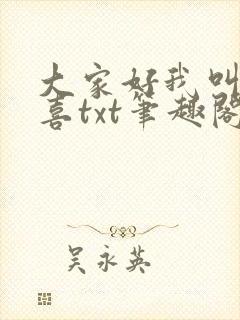 大家好我叫
喜txt笔趣阁
吴永英